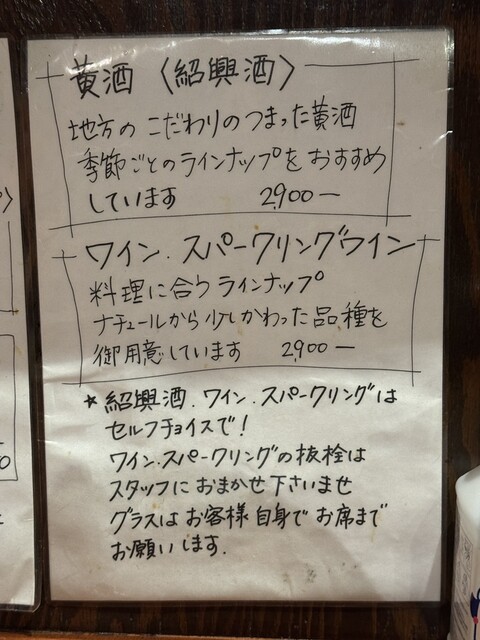 黄酒〈紹興酒〉
地方のこだわりのつまった黄酒
季節ごとのラインナップをおすすめ
しています 2,900ー
ワイン.スパークリングワイン
料理に合うラインナップ
ナチュールから少しかわった品種を
御用意しています 2,900ー
★紹興酒.ワイン.スパークリングは
セルフチョイスで!
ワイン.スパークリングの抜栓は
スタッフにおまかせ下さいませ
グラスはお客様自身でお席まで
お願いします.